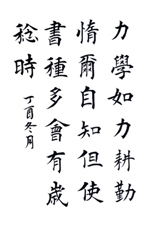 力學如力耕勤
惰爾自知但使
書種多會有歲
稔時
丁酉冬月